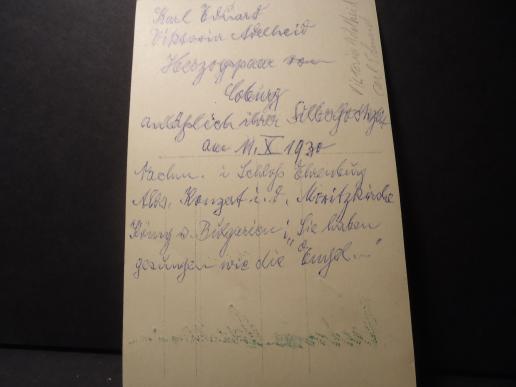 Karl Eduard
Viktoria Adelheid
Herzogspaar von
Coburg
anläßlich ihrer Silberhochzeit
am 11. X 1930
Nachm. i Schloß Ehrenburg
Abds. Konzert i. d. Moritzkirche
König v. Bulgarien: "Sie haben
gesungen wie die Engel..."